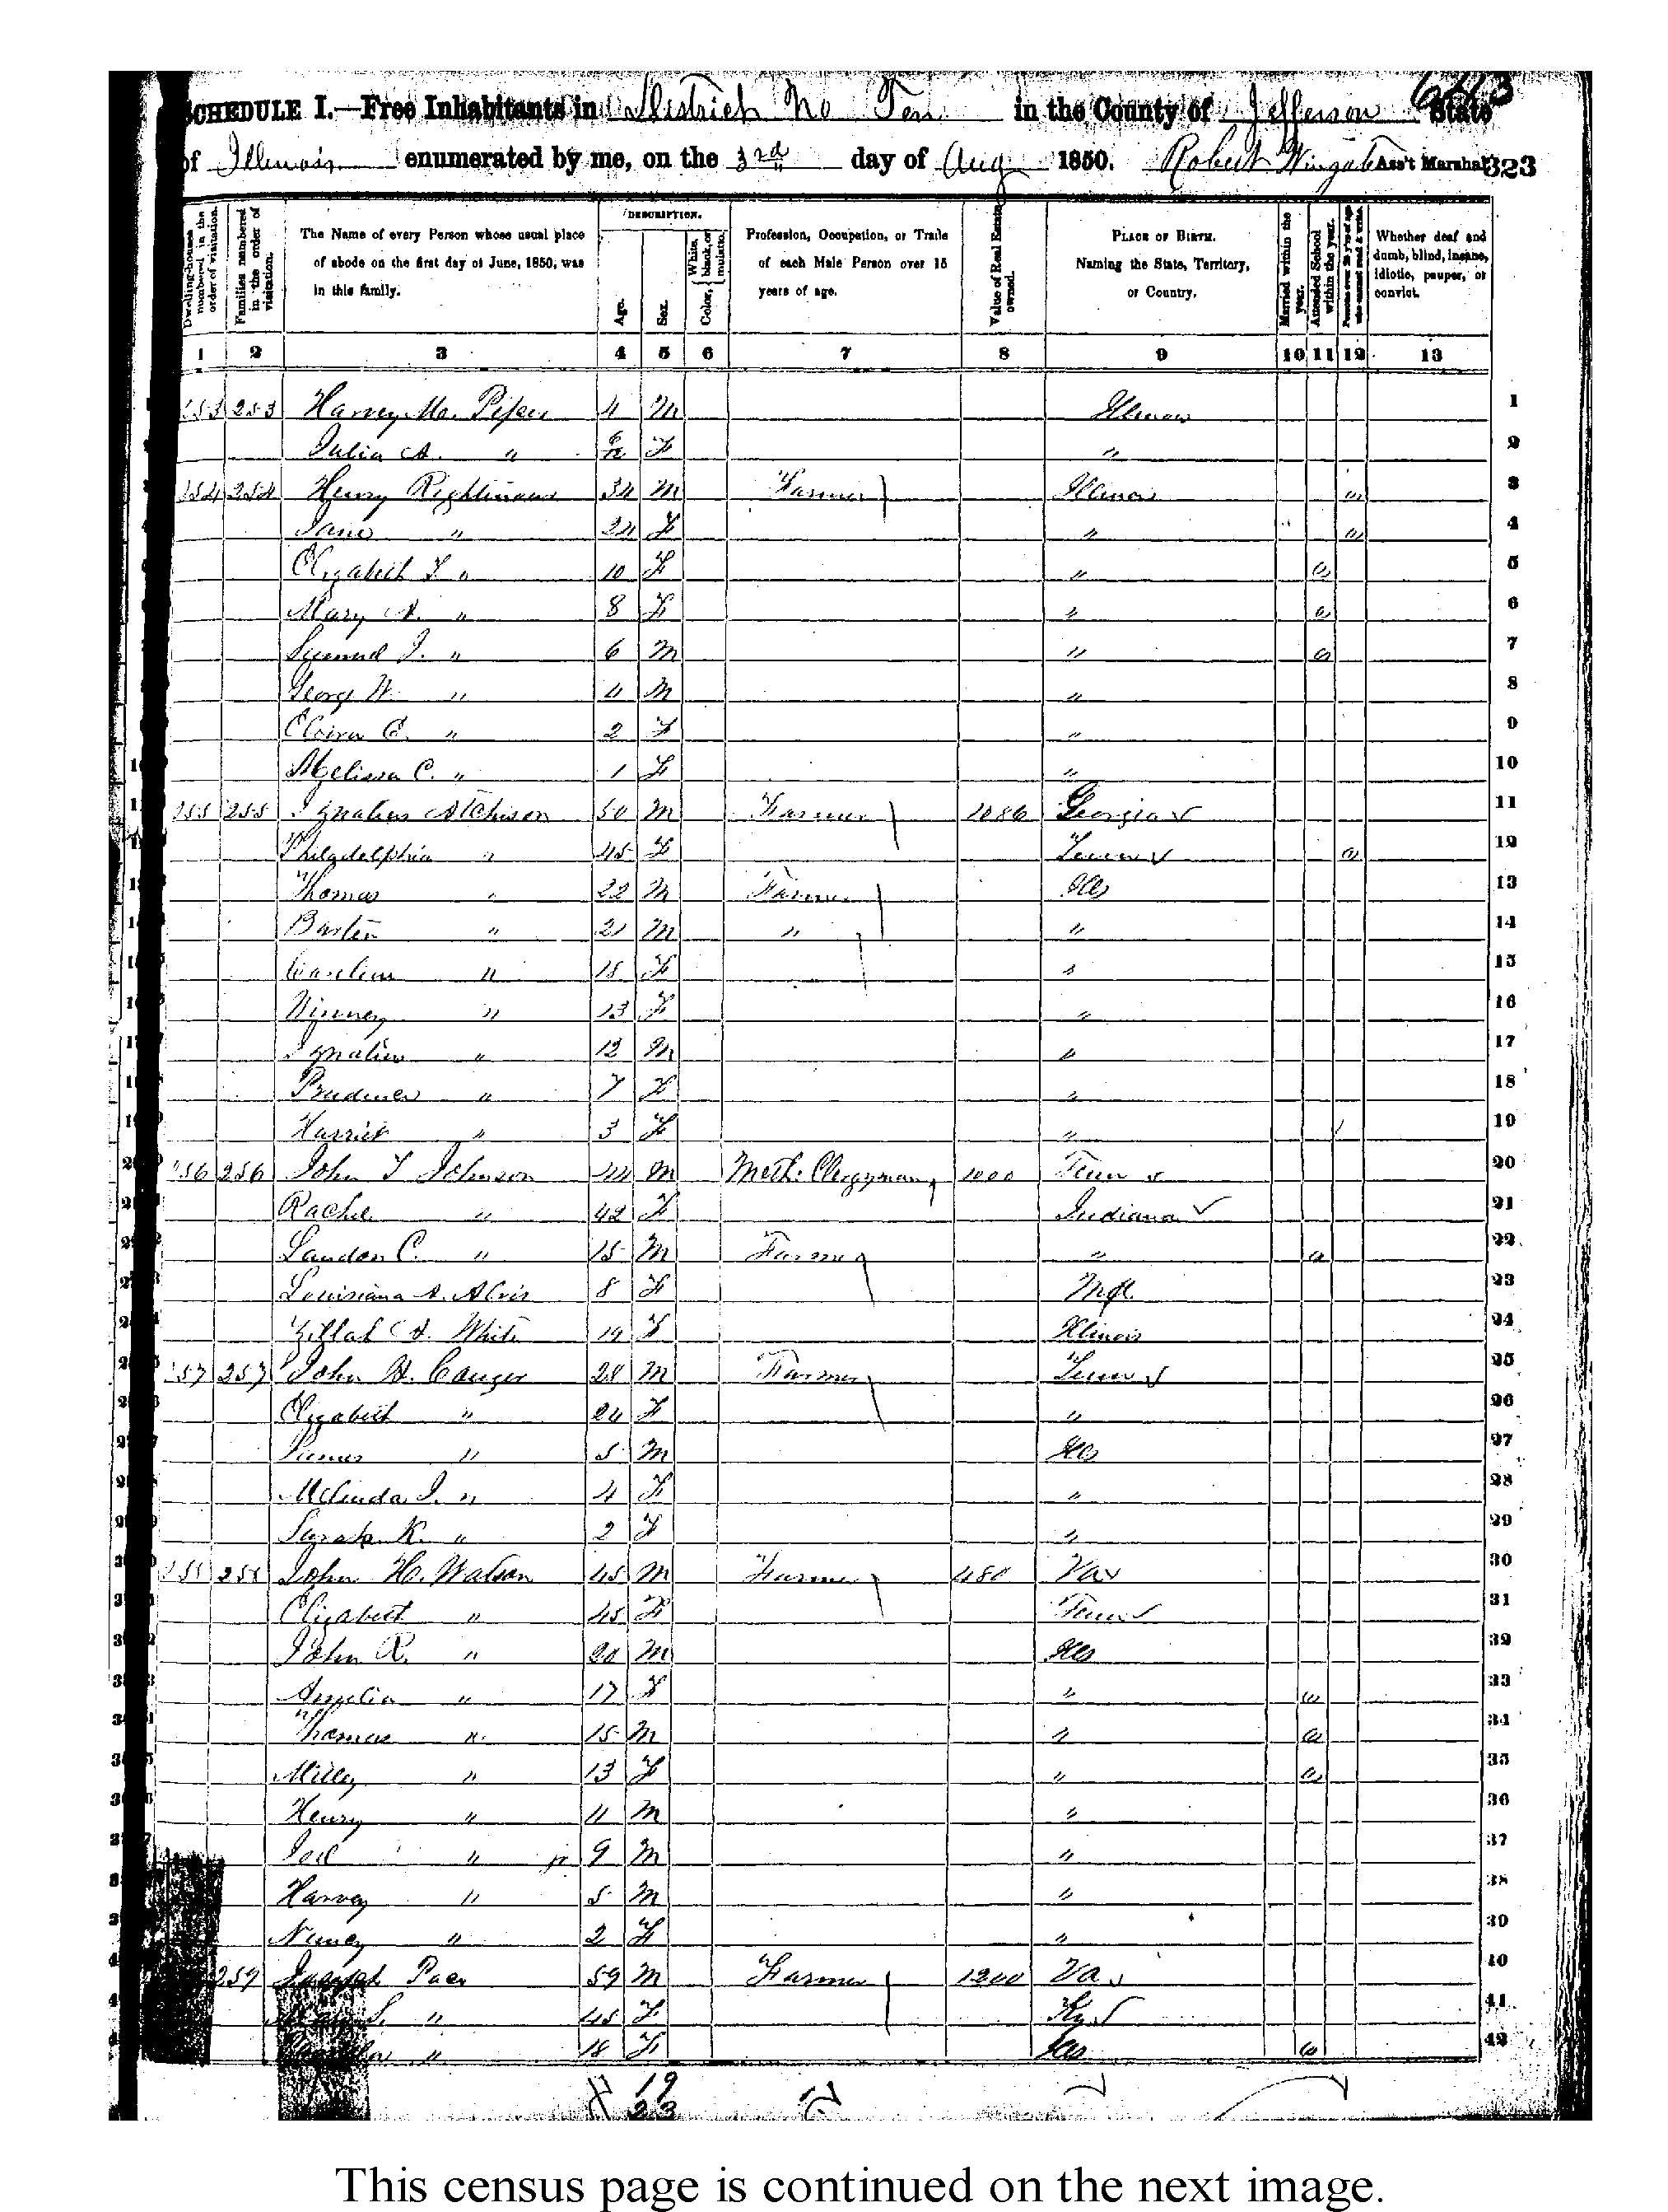 643
SCHEDULE I.—Free Inhabitants in District No Ten in the County of Jefferson State
of Illinois enumerated by me, on the 3rd day of Aug 1850. Robert Wingate Ass't Marshal 323
Dwelling-houses numbered in the order of visitation.
Families numbered in the order of visitation.
The Name of every Person whose usual place of abode on the first day of June, 1850, was in this family.
DESCRIPTION.
Age.
Sex.
Color, White, black, or mulatto.
Profession, Occupation, or Trade of each Male Person over 15 years of age.
Value of Real Estate owned.
PLACE OF BIRTH. Naming the State, Territory, or Country.
Married within the year.
Attended School within the year.
Persons over 20 y'rs of age who cannot read & write.
Whether deaf and dumb, blind, insane, idiotic, pauper, or convict.
1 2 3 4 5 6 7 8 9 10 11 12 13
253 253 Harvey M. Piper 4 M Illinois 1
Julia A. " F " 2
254 254 Henry 34 M Farmer Illinois 3
Jane " 24 F " 4
Elizabeth " 10 F " 5
Mary A. " 8 F " 6
Samuel J. " 6 M " 7
George W. " 4 M " 8
E. " 2 F " 9
Melissa C. " 1 F " 10
255 255 Ignatius Atchison 50 M Farmer 1086 Georgia 11
Philadelphia " 45 F Tenn 12
Thomas " 22 M Farmer Ills 13
Barten " 21 M " " 14
" 15 F " 15
" 13 F " 16
Ignatius " 12 M " 17
Prudence " 7 F " 18
Harriet " 3 F " 19
256 256 John T Johnson 44 M Meth: Clergyman 1000 Tenn 20
Rachel " 42 F Indiana 21
Landon C. " 15 M Farmer " 22
Louisiana A. Alvis 8 F 23
Zillah A. White 19 F Illinois 24
257 257 John 28 M Farmer Tenn 25
Elizabeth " 24 F " 26
James " 5 M Ills 27
Melinda J. " 4 F " 28
Sarah K. " 2 F " 29
258 258 John H. Watson 45 M Farmer 480 Va 30
Elizabeth " 45 F Tenn 31
John R. " 20 M Ills 32
Amelia " 17 F " 33
Thomas " 15 M " 34
Milly " 13 F " 35
Henry " 11 M " 36
Joel " 9 M " 37
Harvey " 5 M " 38
Nancy " 2 F " 39
259 Joseph Pace 59 M Farmer 1200 Va 40
" 45 F Ky 41
" 18 F Ills 42
19
23
This census page is continued on the next image.